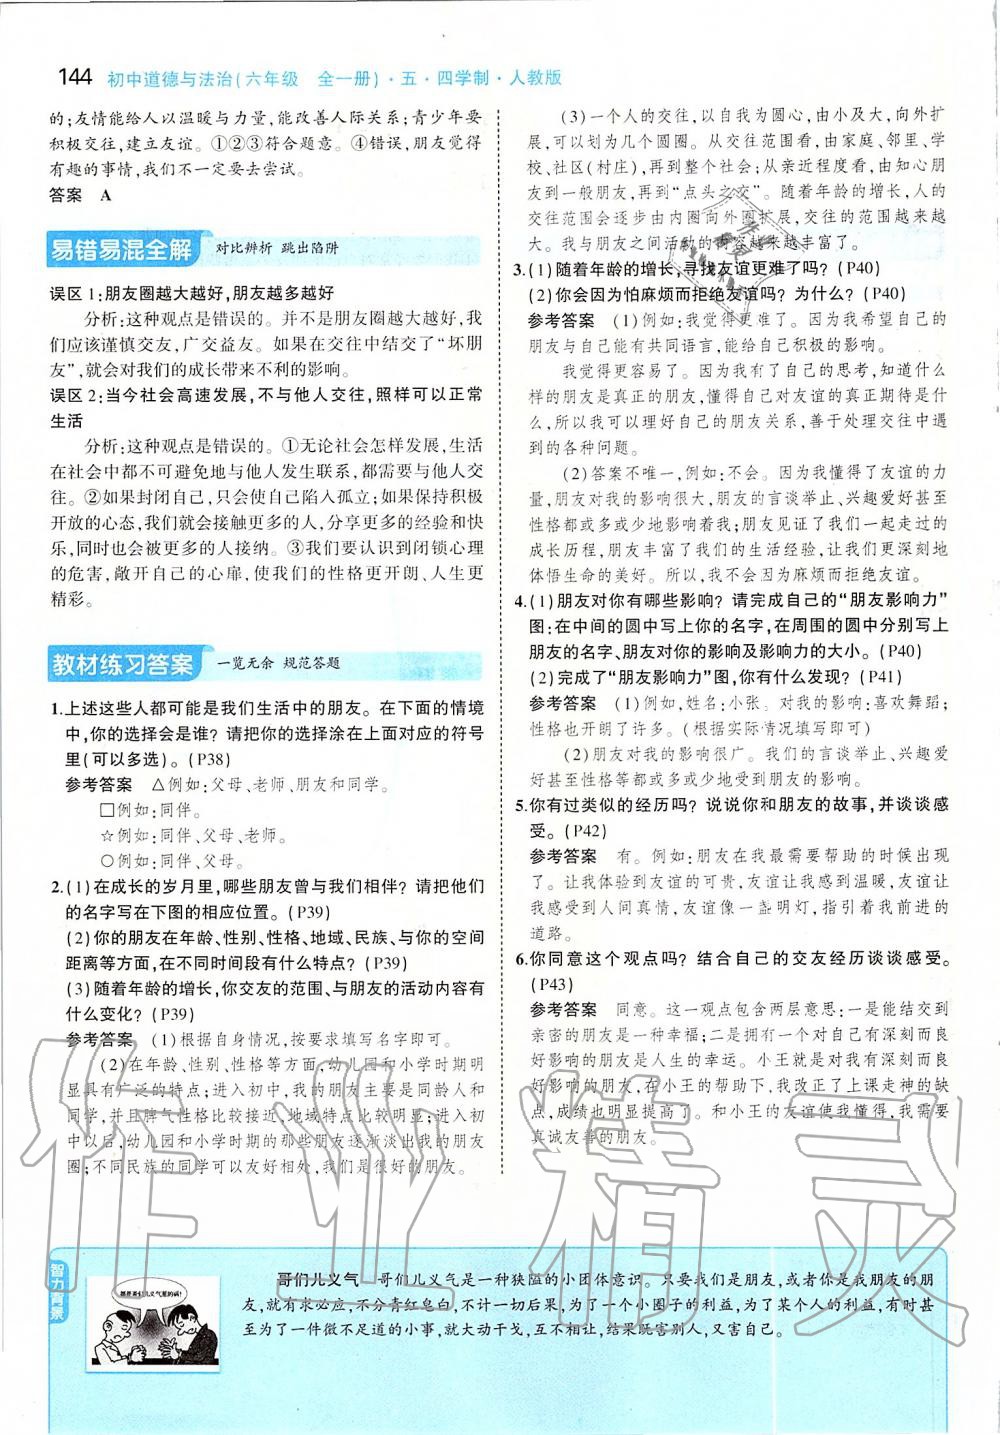 144 初中道德与法治(六年级 全一册)·五·四学制·人教版
的;友情能给人以温暖与力量,能改善人际关系;青少年要
积极交往,建立友谊。①②③符合题意。④错误,朋友觉得
有趣的事情,我们不一定要去尝试。
答案 A
易错易混全解 对比辨析 跳出陷阱
误区1:朋友圈越大越好,朋友越多越好
分析:这种观点是错误的。并不是朋友圈越大越好,我
们应该谨慎交友,广交益友。如果在交往中结交了“坏朋
友”,就会对我们的成长带来不利的影响。
误区2:当今社会高速发展,不与他人交往,照样可以正常
生活
分析:这种观点是错误的。①无论社会怎样发展,生活
在社会中都不可避免地与他人发生联系,都需要与他人交
往。②如果封闭自己,只会使自己陷入孤立;如果保持积极
开放的心态,我们就会接触更多的人,分享更多的经验和快
乐,同时也会被更多的人接纳。③我们要认识到闭锁心理
的危害,敞开自己的心扉,使我们的性格更开朗、人生更
精彩。
教材练习答案 一览无余 规范答题
1.上述这些人都可能是我们生活中的朋友。在下面的情境
中,你的选择会是谁?请把你的选择涂在上面对应的符号
里(可以多选)。(P38)
参考答案 △例如:父母、老师、朋友和同学。
□例如:同伴。
☆例如:同伴、父母、老师。
○例如:同伴、父母。
2.(1)在成长的岁月里,哪些朋友曾与我们相伴?请把他们
的名字写在下图的相应位置。(P39)
(2)你的朋友在年龄、性别、性格、地域、民族、与你的空间
距离等方面,在不同时间段有什么特点?(P39)
(3)随着年龄的增长,你交友的范围、与朋友的活动内容有
什么变化?(P39)
参考答案 (1)根据自身情况,按要求填写名字即可。
(2)在年龄、性别、性格等方面,幼儿园和小学时期明
显具有广泛的特点;进入初中,我的朋友主要是同龄人和
同学,并且脾气性格比较接近,地域特点比较明显;进入初
中以后,幼儿园和小学时期的那些朋友逐渐淡出我的朋友
圈;不同民族的同学可以友好相处,我们是很好的朋友。
(3)一个人的交往,以自我为圆心,由小及大,向外扩
展,可以划为几个圆圈。从交往范围看,由家庭、邻里、学
校、社区(村庄),再到整个社会;从亲近程度看,由知心朋
友到一般朋友,再到“点头之交”。随着年龄的增长,人的
交往范围会逐步由内圈向外圈扩展,交往的范围越来越
大。我与朋友之间活动的内容越来越丰富了。
3.(1)随着年龄的增长,寻找友谊更难了吗?(P40)
(2)你会因为怕麻烦而拒绝友谊吗?为什么?(P40)
参考答案 (1)例如:我觉得更难了。因为我希望自己的
朋友与自己能有共同语言,能给自己积极的影响。
我觉得更容易了。因为我有了自己的思考,知道什么
样的朋友是真正的朋友,懂得自己对友谊的真正期待是什
么,所以我可以理好自己的朋友关系,善于处理交往中遇
到的各种问题。
(2)答案不唯一,例如:不会。因为我懂得了友谊的力
量,朋友对我的影响很大,朋友的言谈举止、兴趣爱好甚至
性格都或多或少地影响着我;朋友见证了我们一起走过的
成长历程,朋友丰富了我们的生活经验,让我们更深刻地
体悟生命的美好。所以,我不会因为麻烦而拒绝友谊。
4.(1)朋友对你有哪些影响?请完成自己的“朋友影响力”
图:在中间的圆中写上你的名字,在周围的圆中分别写上
朋友的名字、朋友对你的影响及影响力的大小。(P40)
(2)完成了“朋友影响力”图,你有什么发现?(P41)
参考答案 (1)例如,姓名:小张。对我的影响:喜欢舞蹈;
性格也开朗了许多。(根据实际情况填写即可)
(2)朋友对我的影响很广。我们的言谈举止、兴趣爱
好甚至性格等都或多或少地受到朋友的影响。
5.你有过类似的经历吗?说说你和朋友的故事,并谈谈感
受。(P42)
参考答案 有。例如:朋友在我最需要帮助的时候出现
了。让我体验到友谊的可贵,友谊让我感到温暖,友谊让
我感受到人间真情,友谊像一盏明灯,指引着我前进的
道路。
6.你同意这个观点吗?结合自己的交友经历谈谈感受。
(P43)
参考答案 同意。这一观点包含两层意思:一是能结交到
亲密的朋友是一种幸福;二是拥有一个对自己有深刻而良
好影响的朋友是人生的幸运。小王就是对我有深刻而良
好影响的朋友,在小王的帮助下,我改正了上课走神的缺
点,成绩也明显提高了。和小王的友谊使我懂得,我需要
真诚友善的朋友。
作业精灵
智力背景
都是哥们儿义气惹的祸!
哥们儿义气 哥们儿义气是一种狭隘的小团体意识。只要我们是朋友,或者你是我朋友的朋
友,就有求必应,不分青红皂白,不计一切后果,为了一个小圈子的利益,为了某个人的利益,有时甚
至为了一件微不足道的小事,就大动干戈,互不相让,结果既害别人,又害自己。